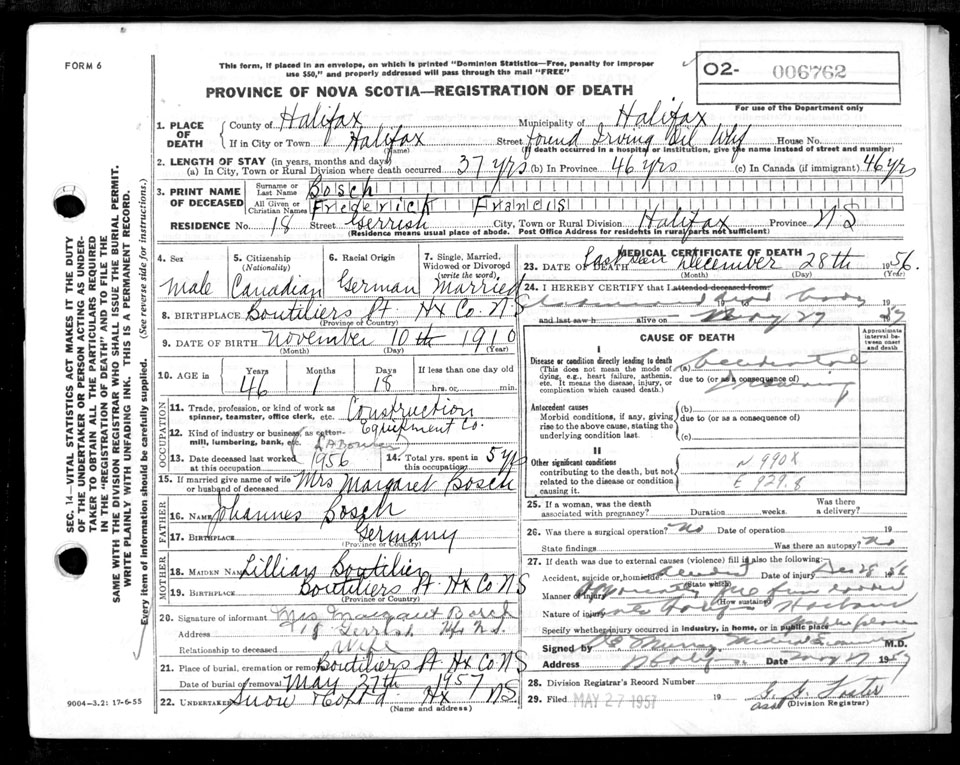 FORM 6
This form, if placed in an envelope, on which is printed "Dominion Statistics—Free, penalty for improper
use $50," and properly addressed will pass through the mail "FREE"
O2- 006762
For use of the Department only
PROVINCE OF NOVA SCOTIA—REGISTRATION OF DEATH
1. PLACE OF DEATH
County of Halifax Municipality of Halifax
If in City or Town Halifax (Name) Street found Irving Oil Whf House No.
(If death occurred in a hospital or institution, give the name instead of street and number)
2. LENGTH OF STAY (in years, months and days)
(a) In City, Town or Rural Division where death occurred 37 yrs (b) In Province 46 yrs (c) In Canada (if immigrant) 46 yrs
3. PRINT NAME OF DECEASED
Surname or Last Name Bosch
All Given or Christian Names Frederick Francis
RESIDENCE No. 18 Street Gerrish City, Town or Rural Division Halifax Province NS
(Residence means usual place of abode. Post Office Address for residents in rural parts not sufficient)
4. Sex male
5. Citizenship (Nationality) Canadian
6. Racial Origin German
7. Single, Married, Widowed or Divorced (write the word) Married
8. BIRTHPLACE Boutiliers Pt. Hx Co. N S
(Province or Country)
9. DATE OF BIRTH November 10th 1910
(Month) (Day) (Year)
10. AGE in Years 46 Months 1 Days 18 If less than one day old hrs. or min.
OCCUPATION
11. Trade, profession, or kind of work as spinner, teamster, office clerk, etc. Construction
12. Kind of industry or business, as cotton-mill, lumbering, bank, etc. Equipment Co.
13. Date deceased last worked at this occupation 1956
14. Total yrs. spent in this occupation 5 yrs
15. If married give name of wife or husband of deceased Mrs Margaret Bosch
FATHER
16. NAME Johannes Bosch
17. BIRTHPLACE Germany
(Province or Country)
MOTHER
18. MAIDEN NAME Lillian Boutilier
19. BIRTHPLACE Boutiliers Pt Hx Co NS
(Province or Country)
20. Signature of informant Mrs Margaret Bosch
Address 18 Gerrish Hfx N.S.
Relationship to deceased Wife
21. Place of burial, cremation or removal Boutiliers Pt Hx Co NS
Date of burial or removal May 27th 1957
22. UNDERTAKER Snow & Co Ltd Hx NS
(Name and address)
MEDICAL CERTIFICATE OF DEATH
23. DATE OF DEATH Last seen December 28th 1956
(Month) (Day) (Year)
24. I HEREBY CERTIFY that I attended deceased from:
body 19
and last saw h alive on May 27 1957
CAUSE OF DEATH
Approximate interval between onset and death
I
Disease or condition directly leading to death
(This does not mean the mode of dying, e.g., heart failure, asthenia, etc. It means the disease, injury, or complication which caused death.)
(a) Accidental
due to (or as a consequence of) drowning
Antecedent causes
Morbid conditions, if any, giving rise to the above cause, stating the underlying condition last.
(b)
due to (or as a consequence of)
(c)
II
Other significant conditions
contributing to the death, but not related to the disease or condition causing it.
N 990X
E 929.8
25. If a woman, was the death associated with pregnancy? Duration weeks Was there a delivery?
26. Was there a surgical operation? No Date of operation 19
State findings Was there an autopsy? No
27. If death was due to external causes (violence) fill in also the following:
Accident, suicide or homicide accident (State which) Date of injury Dec 28 1956
Manner of injury
(How sustained)
Nature of injury Harbour
Specify whether injury occurred in industry, in home, or in public place
Signed by Medical Examiner M.D.
Address Date May 27 1957
28. Division Registrar's Record Number
29. Filed MAY 27 1957 19
(Division Registrar)
SEC. 14—VITAL STATISTICS ACT MAKES IT THE DUTY
OF THE UNDERTAKER OR PERSON ACTING AS UNDER-
TAKER TO OBTAIN ALL THE PARTICULARS REQUIRED
IN THE "REGISTRATION OF DEATH" AND TO FILE THE
SAME WITH THE DIVISION REGISTRAR WHO SHALL ISSUE THE BURIAL PERMIT.
WRITE PLAINLY WITH UNFADING INK. THIS IS A PERMANENT RECORD.
Every item of information should be carefully supplied. (See reverse side for instructions.)
9004-3.2: 17-6-55